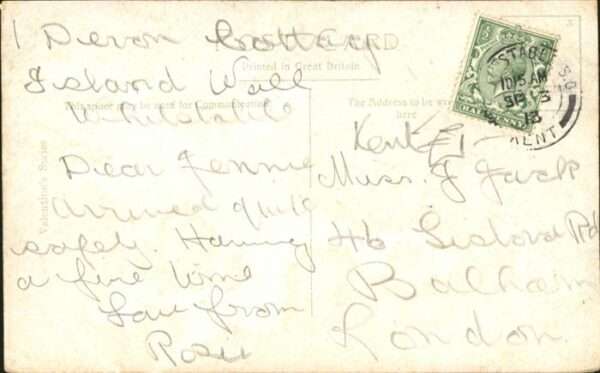 1 Devon Cottag
Island Wall
Whitstable
Kent
Dear Jennie
arrived quite
safely. Having
a fine time
Love from
Rosie
Miss J Jack
46 Rd
Balham
London.
CARD
Printed in Great Britain
This space may be used for Communication
The Address to be
here
Valentine's Series
10.15 AM
SP 3
13
KENT